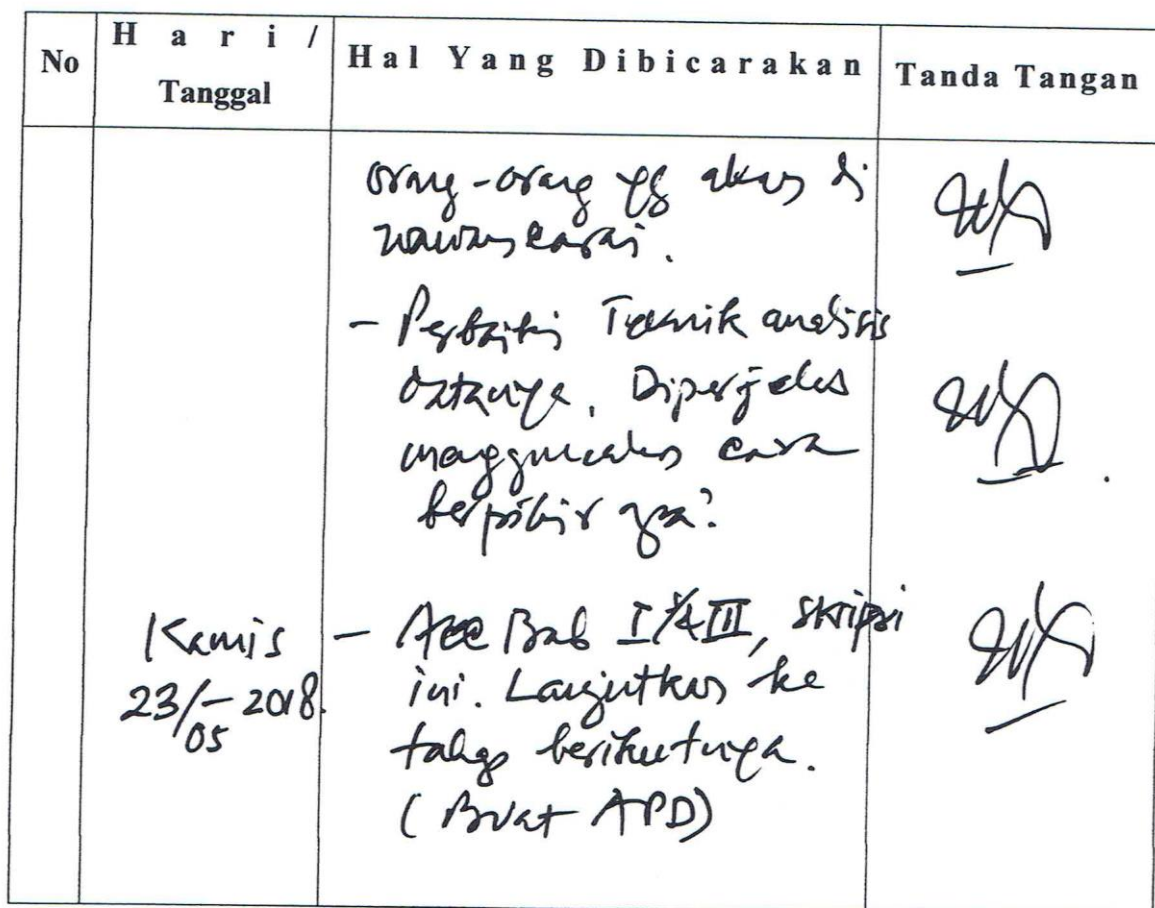 No
Hari/
Tanggal
Hal Yang Dibicarakan
Tanda Tangan
orang-orang yg akan di
wawancarai.
- Perbaiki Teknik analisis
datanya. Diperjelas
menggunakan cara
berpikir apa?
Kamis
23/05-2018.
- Acc Bab I s/d III, skripsi
ini. Lanjutkan ke
tahap berikutnya.
(Buat APD)